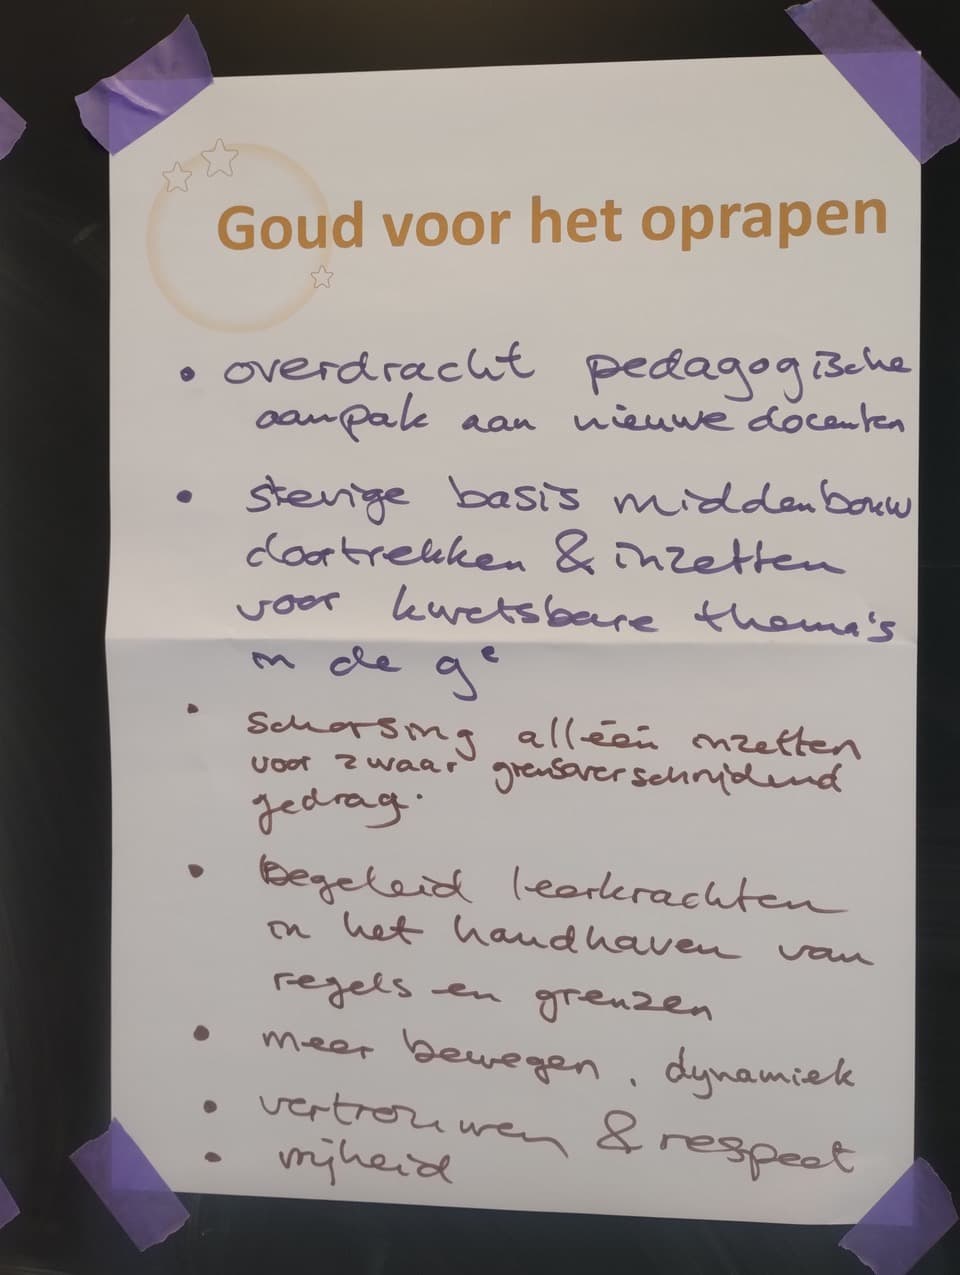 Goud voor het oprapen
• overdracht pedagogische
aanpak aan nieuwe docenten
• stevige basis middenbouw
doortrekken & inzetten
voor kwetsbare thema's
in de 9e
• schorsing alléén inzetten
voor zwaar grensoverschrijdend
gedrag.
• Begeleid leerkrachten
in het handhaven van
regels en grenzen
• meer bewegen, dynamiek
• vertrouwen & respect
• vrijheid